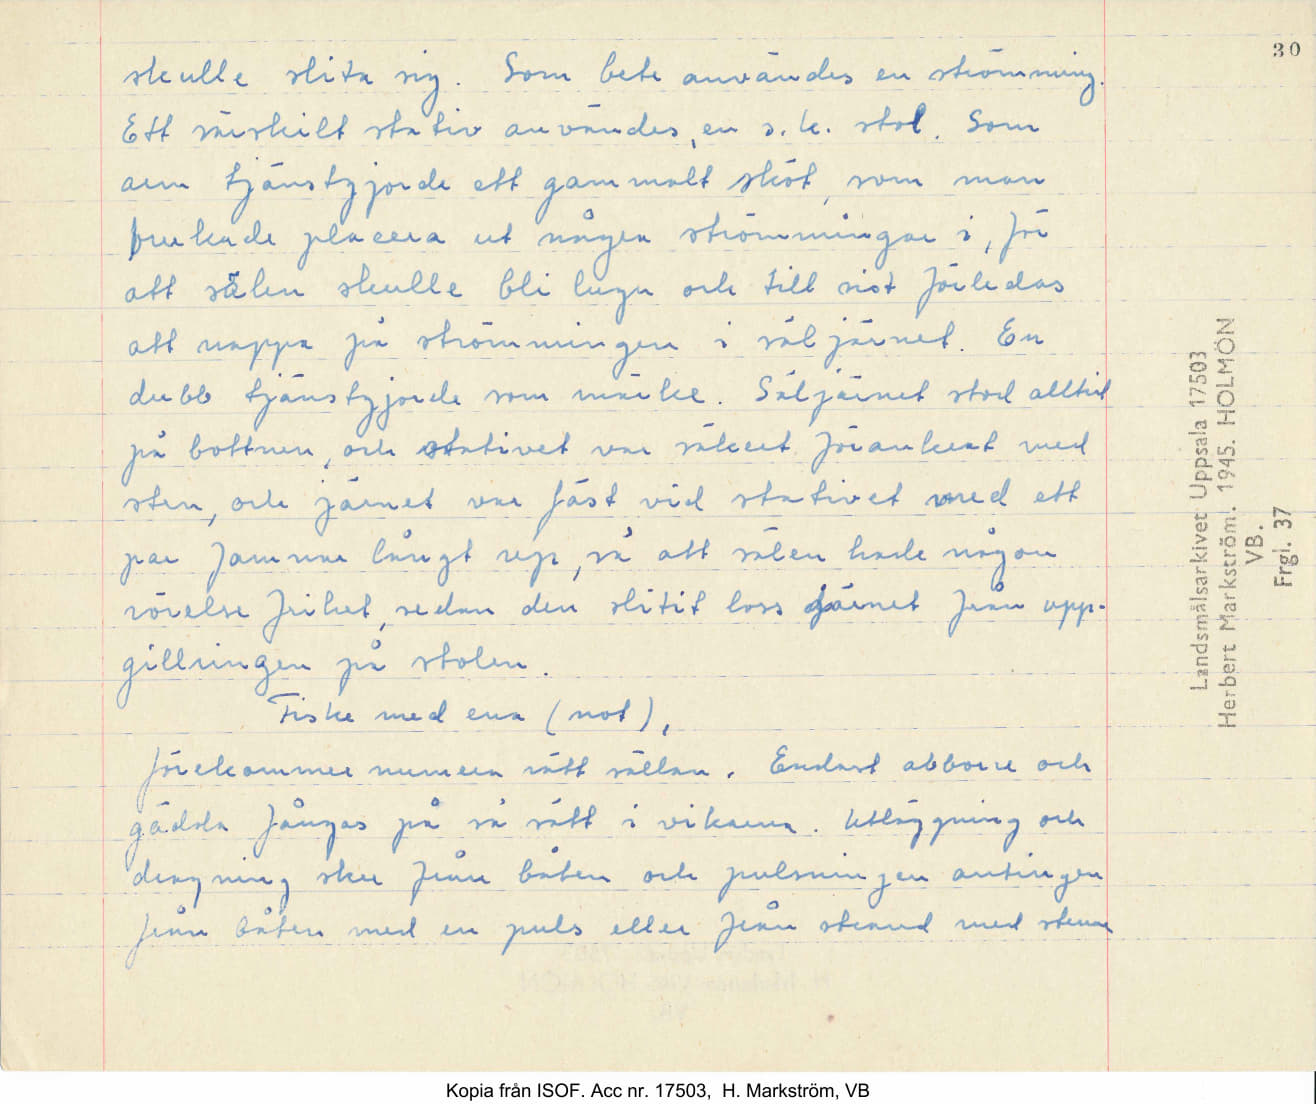 30
skulle slita sig. Som bete användes en strömming.
Ett särskilt stativ användes, en s.k. stol. Som
arm tjänstgjorde ett gammalt sköt, som man
brukade placera ut några strömmingar i, för
att sälen skulle bli lugn och till sist förledas
att nappa på strömmingen i säljärnet. En
dubb tjänstgjorde som märke. Säljärnet stod alltid
på bottnen, och stativet var säkert förankrat med
sten, och järnet var fäst vid stativet med ett
par famnar långt rep, så att sälen hade någon
rörelse frihet, sedan den slitit loss järnet från upp-
gillringen på stolen.
Fiske med (not),
förekommer numera rätt sällan. Endast abborre och
gädda fångas på så sätt i vikarna. Utläggning och
dragning sker från båten och pulsningen antingen
från båten med en puls eller från strand med stenar
Landsmålsarkivet Uppsala 17503
Herbert Markström. 1945. HOLMÖN
VB.
Frgl. 37
Kopia från ISOF. Acc nr. 17503, H. Markström, VB